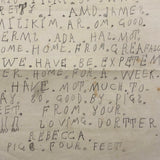 AND. JAMES
MILIKIM. AR. OM. GOOD.
TERMS. ADA. HAS. NOT.
COME. HOME. FROM. GREAFALS
WE. HAVE. BE. EXPETEN
HER. HOME. FOR. A. WEEK.
I HAVE. NOT. MUCH. TO.
SO. GOOD. BY. PIGS.
FEET. FROM. YOUR.
LOVING. DORTTER
REBECCA.
PIGS. FOUR. FEET.